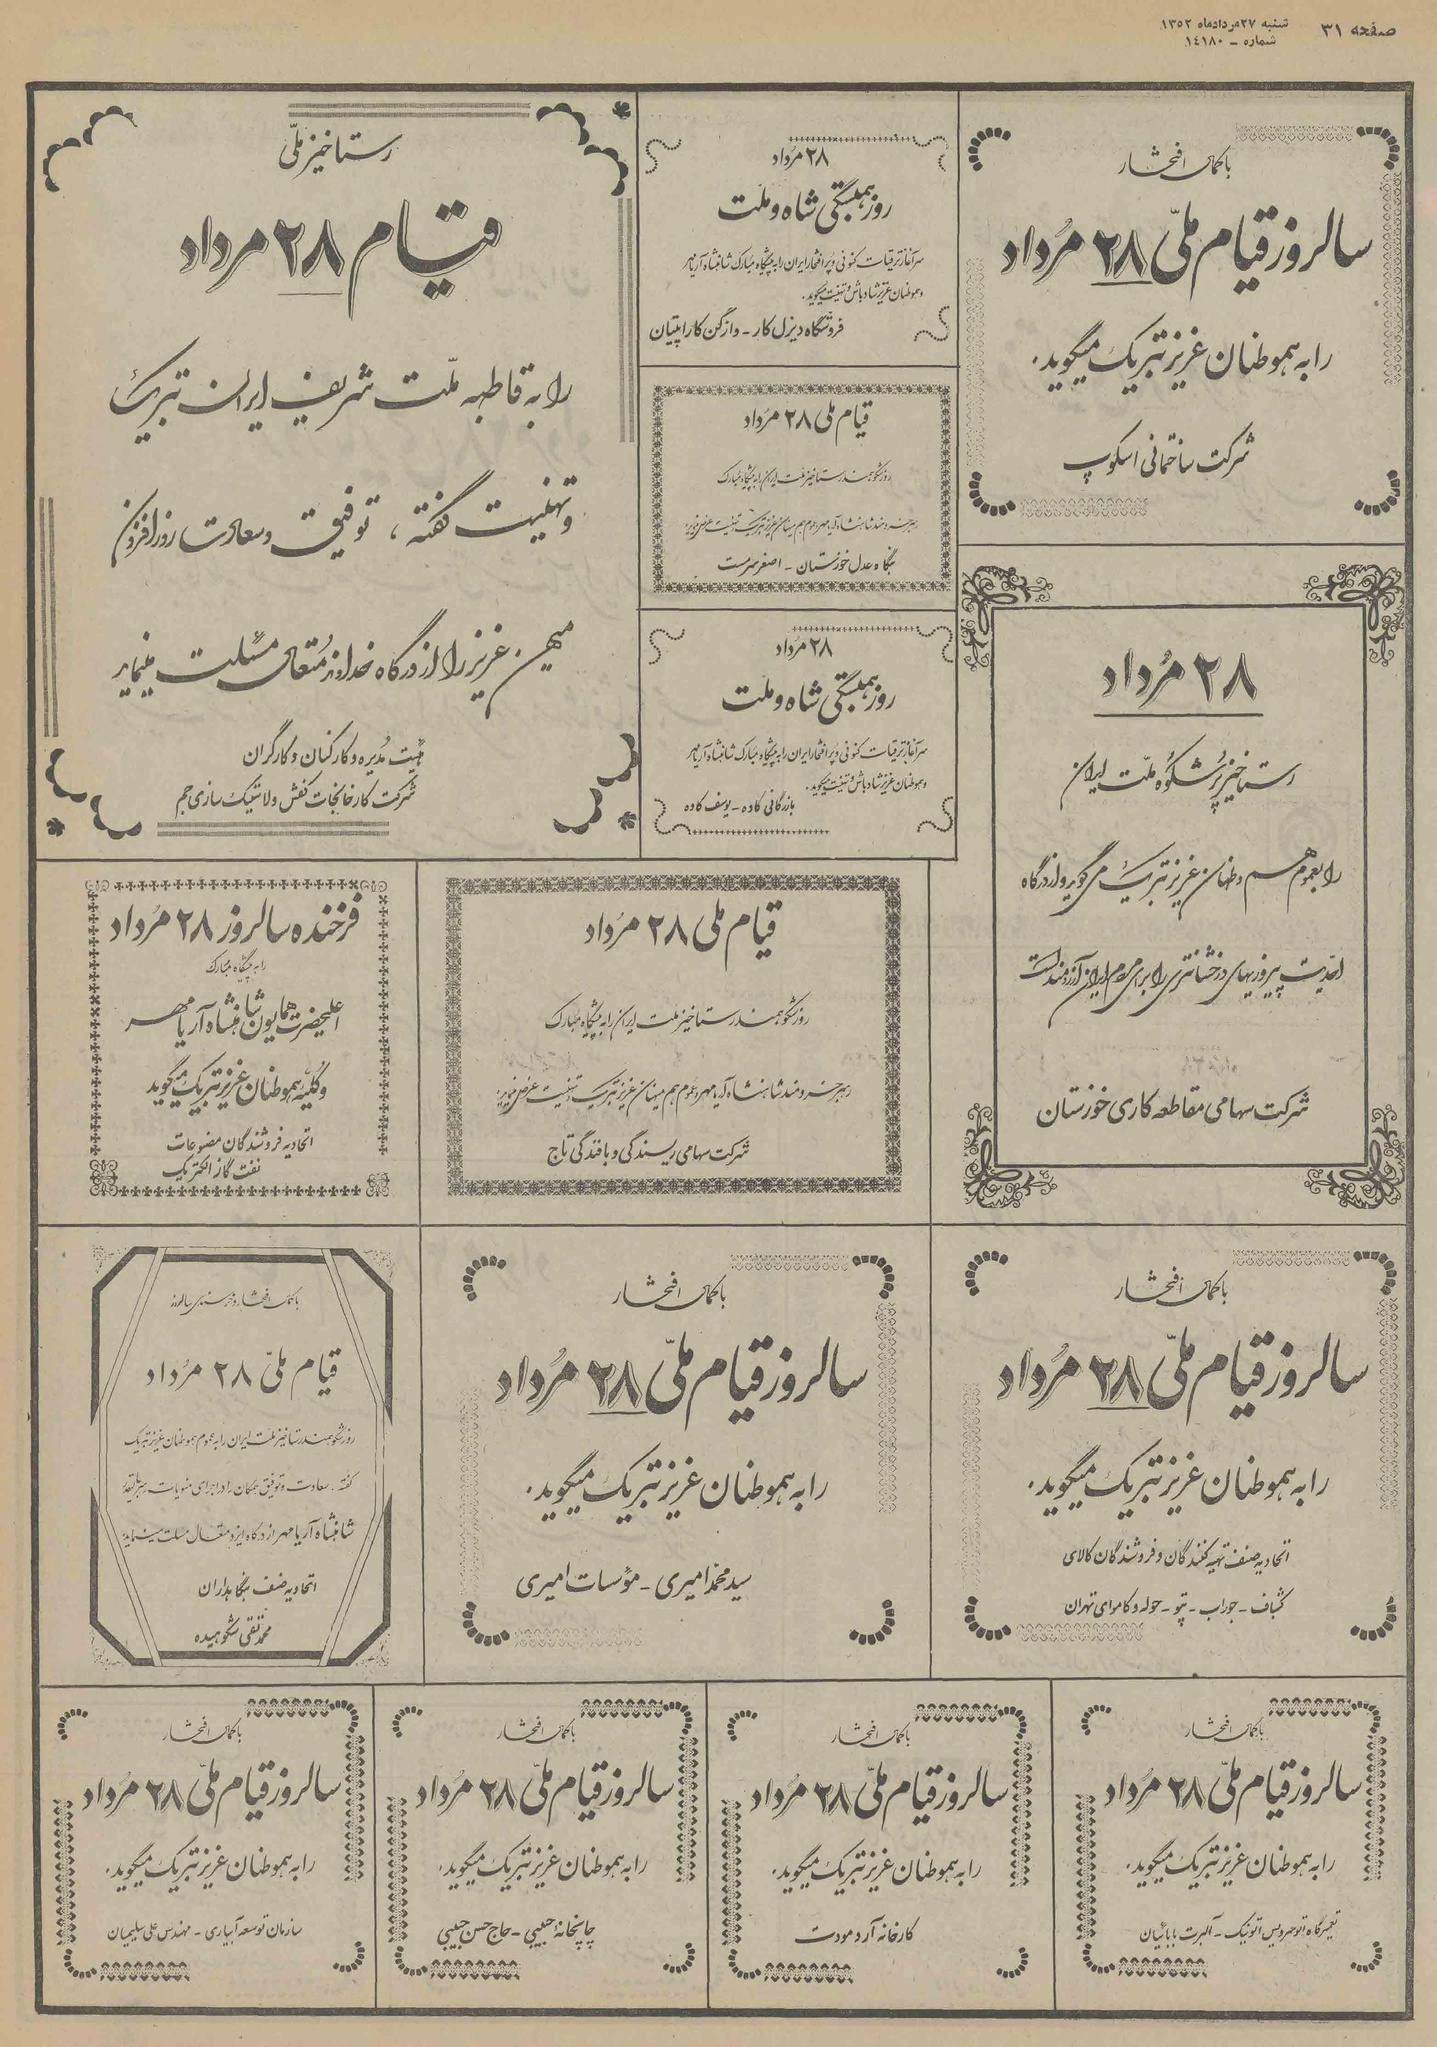 صفحه ۳۱
شنبه ۲۷ مرداد ماه ۱۳۵۲
شماره - ۱۴۱۸۰
با کمال افتخار
سالروز قیام ملّی ۲۸ مرُداد
را به هموطنان عزیز تبریک میگوید.
شرکت ساختمانی اسکوپ
۲۸ مرُداد
روز همبستگی شاه و ملت
سرآغاز ترقیات کنونی و پر افتخار ایران را به پیشگاه مبارک شاهنشاه آریامهر
و هموطنان عزیز شادباش و تهنیت میگوید.
فروشگاه دیزل کار - وازگن کاراپتیان
رستاخیز ملّی
قیام ۲۸ مرداد
را به قاطبه ملّت شریف ایران تبریک
و تهنیت گفته ، توفیق و سعادت روزافزون
میهن عزیز را از درگاه خداوند متعال مسئلت مینماید
هیئت مدیره و کارکنان و کارگران
شرکت کارخانجات کفش و لاستیک سازی جم
قیام ملی ۲۸ مرُداد
روز شکوهمند رستاخیز ملت ایران را به پیشگاه مبارک
رهبر خردمند شاهنشاه آریامهر و عموم هم میهنان عزیز تبریک و تهنیت عرض مینماید
بنگاه عدل خوزستان - اصغر سرمست
۲۸ مرُداد
روز همبستگی شاه و ملت
سرآغاز ترقیات کنونی و پر افتخار ایران را به پیشگاه مبارک شاهنشاه آریامهر
و هموطنان عزیز شادباش و تهنیت میگوید.
بازرگانی کاده - یوسف کاده
۲۸ مرُداد
رستاخیز پرُ شکوُه ملّت ایران
را بعموم هم وطنان عزیز تبریک می گوید و از درگاه
احدیت پیروزیهای درخشانتری را برای مردم ایران آرزومند است
شرکت سهامی مقاطعه کاری خوزستان
قیام ملی ۲۸ مرُداد
روز شکوهمند رستاخیز ملت ایران را به پیشگاه مبارک
رهبر خردمند شاهنشاه آریامهر و عموم هم میهنان عزیز تبریک و تهنیت عرض مینماید
شرکت سهامی ریسندگی و بافندگی تاج
فرخنده سالروز ۲۸ مرُداد
را به پیشگاه مبارک
اعلیحضرت همایون شاهنشاه آریامهر
و کلیّه هموطنان عزیز تبریک میگوید
اتحادیه فروشندگان مصنوعات
نفت گاز الکتریک
با کمال افتخار
سالروز قیام ملّی ۲۸ مرُداد
را به هموطنان عزیز تبریک میگوید.
اتحادیه صنف تهیه کنندگان و فروشندگان کالای
کشباف - جوراب - پتو - حوله و کاموای تهران
با کمال افتخار
سالروز قیام ملّی ۲۸ مرُداد
را به هموطنان عزیز تبریک میگوید.
سید محمد امیری - مؤسسات امیری
با کمال افتخار و خرسندی سالروز
قیام ملیّ ۲۸ مرُداد
روز شکوهمند رستاخیز ملت ایران را به عموم هموطنان عزیز تبریک
گفته. سعادت و توفیق همگان را در اجرای منویات
شاهنشاه آریامهر از درگاه ایزد متعال مسئلت مینماید
اتحادیه صنف بنگاهداران
محمد تقی شکوهیده
با کمال افتخار
سالروز قیام ملّی ۲۸ مرُداد
را به هموطنان عزیز تبریک میگوید.
تعمیرگاه اتوسرویس اتونیک - آلبرت بابائیان
با کمال افتخار
سالروز قیام ملّی ۲۸ مرُداد
را به هموطنان عزیز تبریک میگوید.
کارخانه آرد مودت
با کمال افتخار
سالروز قیام ملّی ۲۸ مرُداد
را به هموطنان عزیز تبریک میگوید.
چاپخانهٔ حبیبی - حاج حسن حبیبی
با کمال افتخار
سالروز قیام ملّی ۲۸ مرُداد
را به هموطنان عزیز تبریک میگوید.
سازمان توسعه آبیاری - مهندس علی سلیمیان